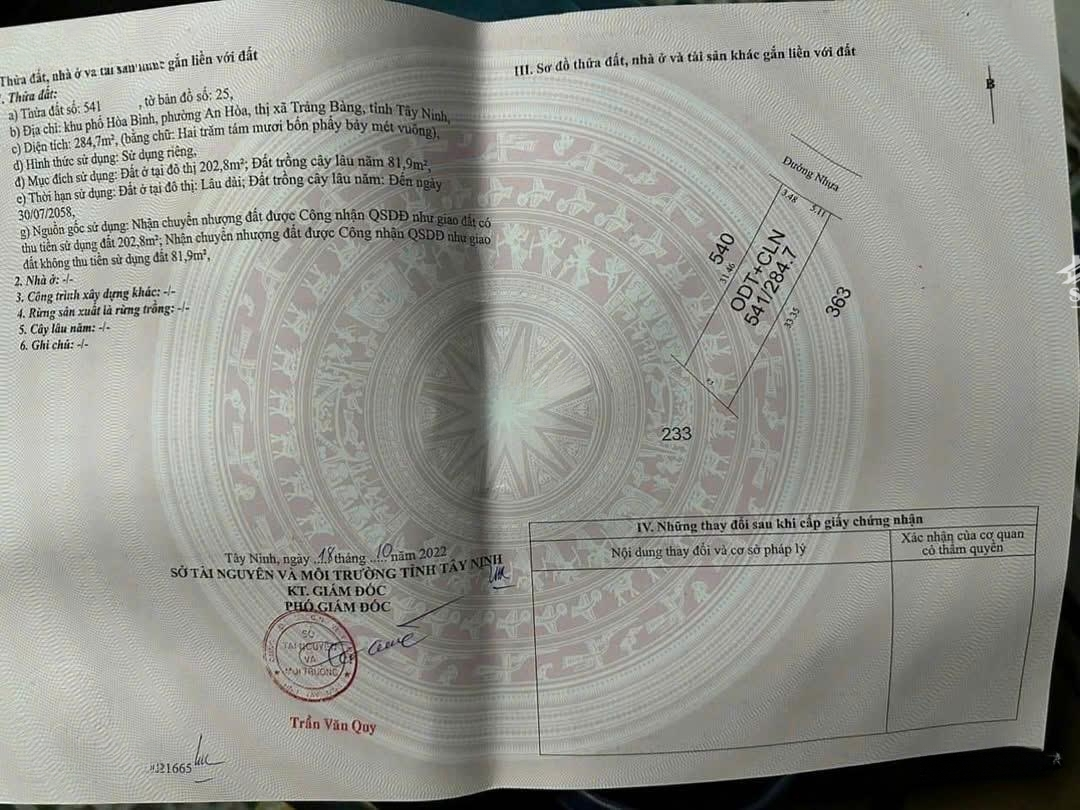 Thửa đất, nhà ở và tài sản khác gắn liền với đất
1. Thửa đất:
a) Thửa đất số: 541 , tờ bản đồ số: 25,
b) Địa chỉ: khu phố Hòa Bình, phường An Hòa, thị xã Trảng Bàng, tỉnh Tây Ninh,
c) Diện tích: 284,7m², (bằng chữ: Hai trăm tám mươi bốn phẩy bảy mét vuông),
d) Hình thức sử dụng: Sử dụng riêng,
đ) Mục đích sử dụng: Đất ở tại đô thị 202,8m²; Đất trồng cây lâu năm 81,9m²,
e) Thời hạn sử dụng: Đất ở tại đô thị: Lâu dài; Đất trồng cây lâu năm: Đến ngày
30/07/2058,
g) Nguồn gốc sử dụng: Nhận chuyển nhượng đất được Công nhận QSDĐ như giao đất có
thu tiền sử dụng đất 202,8m²; Nhận chuyển nhượng đất được Công nhận QSDĐ như giao
đất không thu tiền sử dụng đất 81,9m²,
2. Nhà ở: -/-
3. Công trình xây dựng khác: -/-
4. Rừng sản xuất là rừng trồng: -/-
5. Cây lâu năm: -/-
6. Ghi chú: -/-
Tây Ninh, ngày 18 tháng 10 năm 2022
SỞ TÀI NGUYÊN VÀ MÔI TRƯỜNG TỈNH TÂY NINH
KT. GIÁM ĐỐC
PHÓ GIÁM ĐỐC
SỞ
TÀI NGUYÊN
VÀ
MÔI TRƯỜNG
Trần Văn Quy
21665
III. Sơ đồ thửa đất, nhà ở và tài sản khác gắn liền với đất
B
Đường Nhựa
3.48
5.11
540
31.46
ODT+CLN
541/284.7
33.35
363
233
IV. Những thay đổi sau khi cấp giấy chứng nhận
Nội dung thay đổi và cơ sở pháp lý
Xác nhận của cơ quan
có thẩm quyền